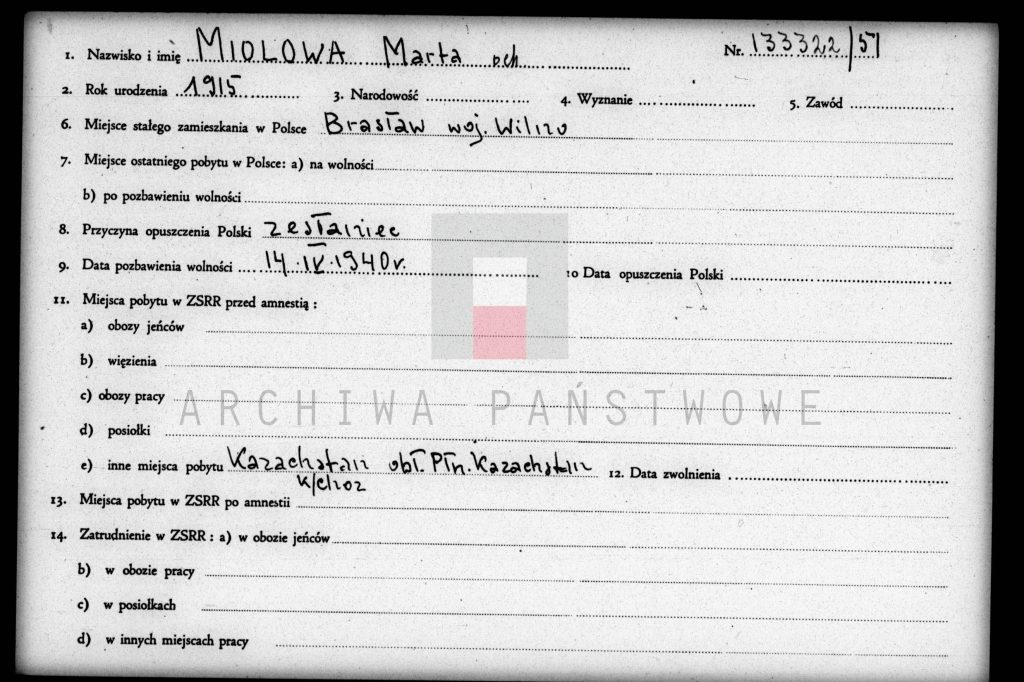 1. Nazwisko i imię MIOLOWA Marta och Nr. 133322/51
2. Rok urodzenia 1915 3. Narodowość 4. Wyznanie 5. Zawód
6. Miejsce stałego zamieszkania w Polsce Brasław woj. Wilno
7. Miejsce ostatniego pobytu w Polsce: a) na wolności
b) po pozbawieniu wolności
8. Przyczyna opuszczenia Polski zesłaniec
9. Data pozbawienia wolności 14.IV.1940r. 10 Data opuszczenia Polski
11. Miejsca pobytu w ZSRR przed amnestią :
a) obozy jeńców
b) więzienia
c) obozy pracy
ARCHIWA PAŃSTWOWE
d) posiołki
e) inne miejsca pobytu Kazachstan obł. Płn. Kazachstan 12. Data zwolnienia
13. Miejsca pobytu w ZSRR po amnestii
14. Zatrudnienie w ZSRR : a) w obozie jeńców
b) w obozie pracy
c) w posiołkach
d) w innych miejscach pracy